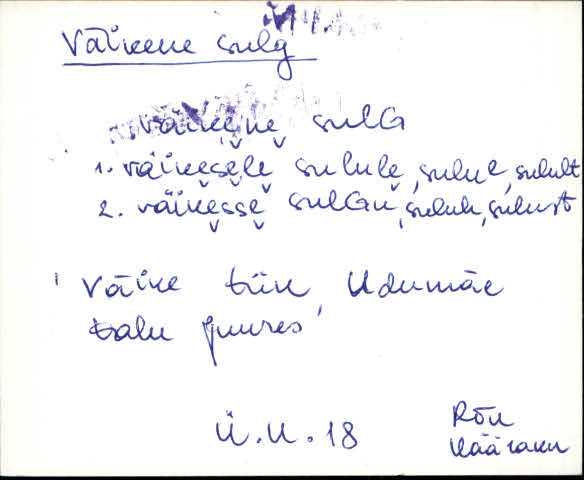 Väikene sulg
väikene sulG
1. väikesele sulule, sulul, sulult
2. väikesse sulGu, suluh, sulust
' Väike tiik, Udumäe
talu juures '
Ü.U. 18
Rõu
Kääraku